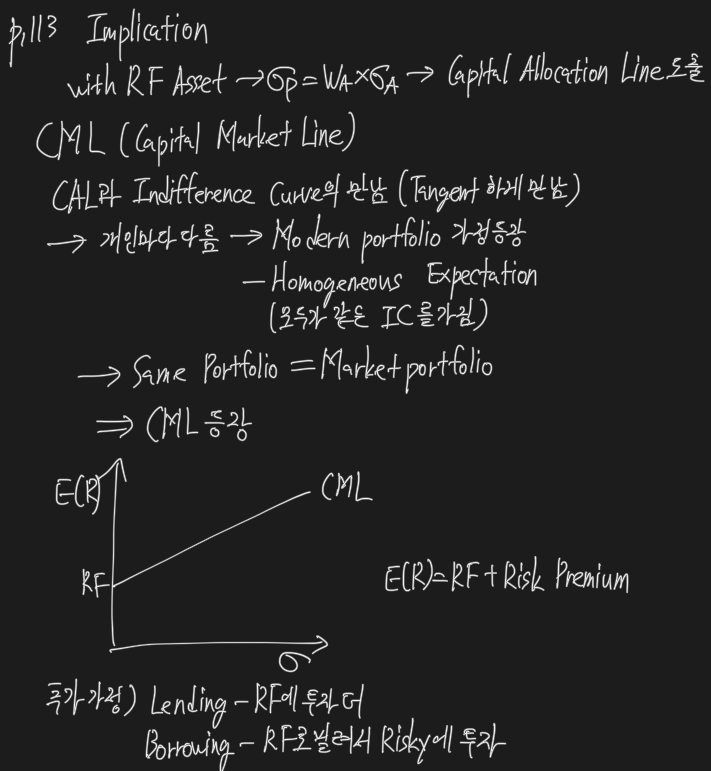 p.113 Implication
with RF Asset → σp = WA×σA → Capital Allocation Line 도출
CML (Capital Market Line)
CAL과 Indifference Curve의 만남 (Tangent 하게 만남)
→ 개인마다 다름 → Modern portfolio 가정등장
- Homogeneous Expectation
(모두가 같은 IC를 가짐)
→ Same Portfolio = Market portfolio
⇒ CML 등장
E(R)
CML
RF
E(R)=RF+Risk Premium
σ
추가가정) Lending - RF에 투자 더
Borrowing - RF로 빌려서 Risky에 투자